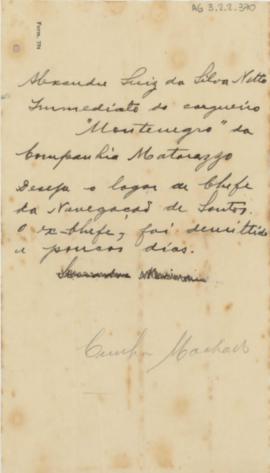 AG 3.2.2.370
Form. 194
Alexandre Luiz da Silva Netto
Immediato do cargueiro
"Montenegro" da
Companhia Matarazzo
Deseja o logar de Chefe
da Navegação de Santos.
O ex-Chefe, foi demittido
a poucos dias.
Machado